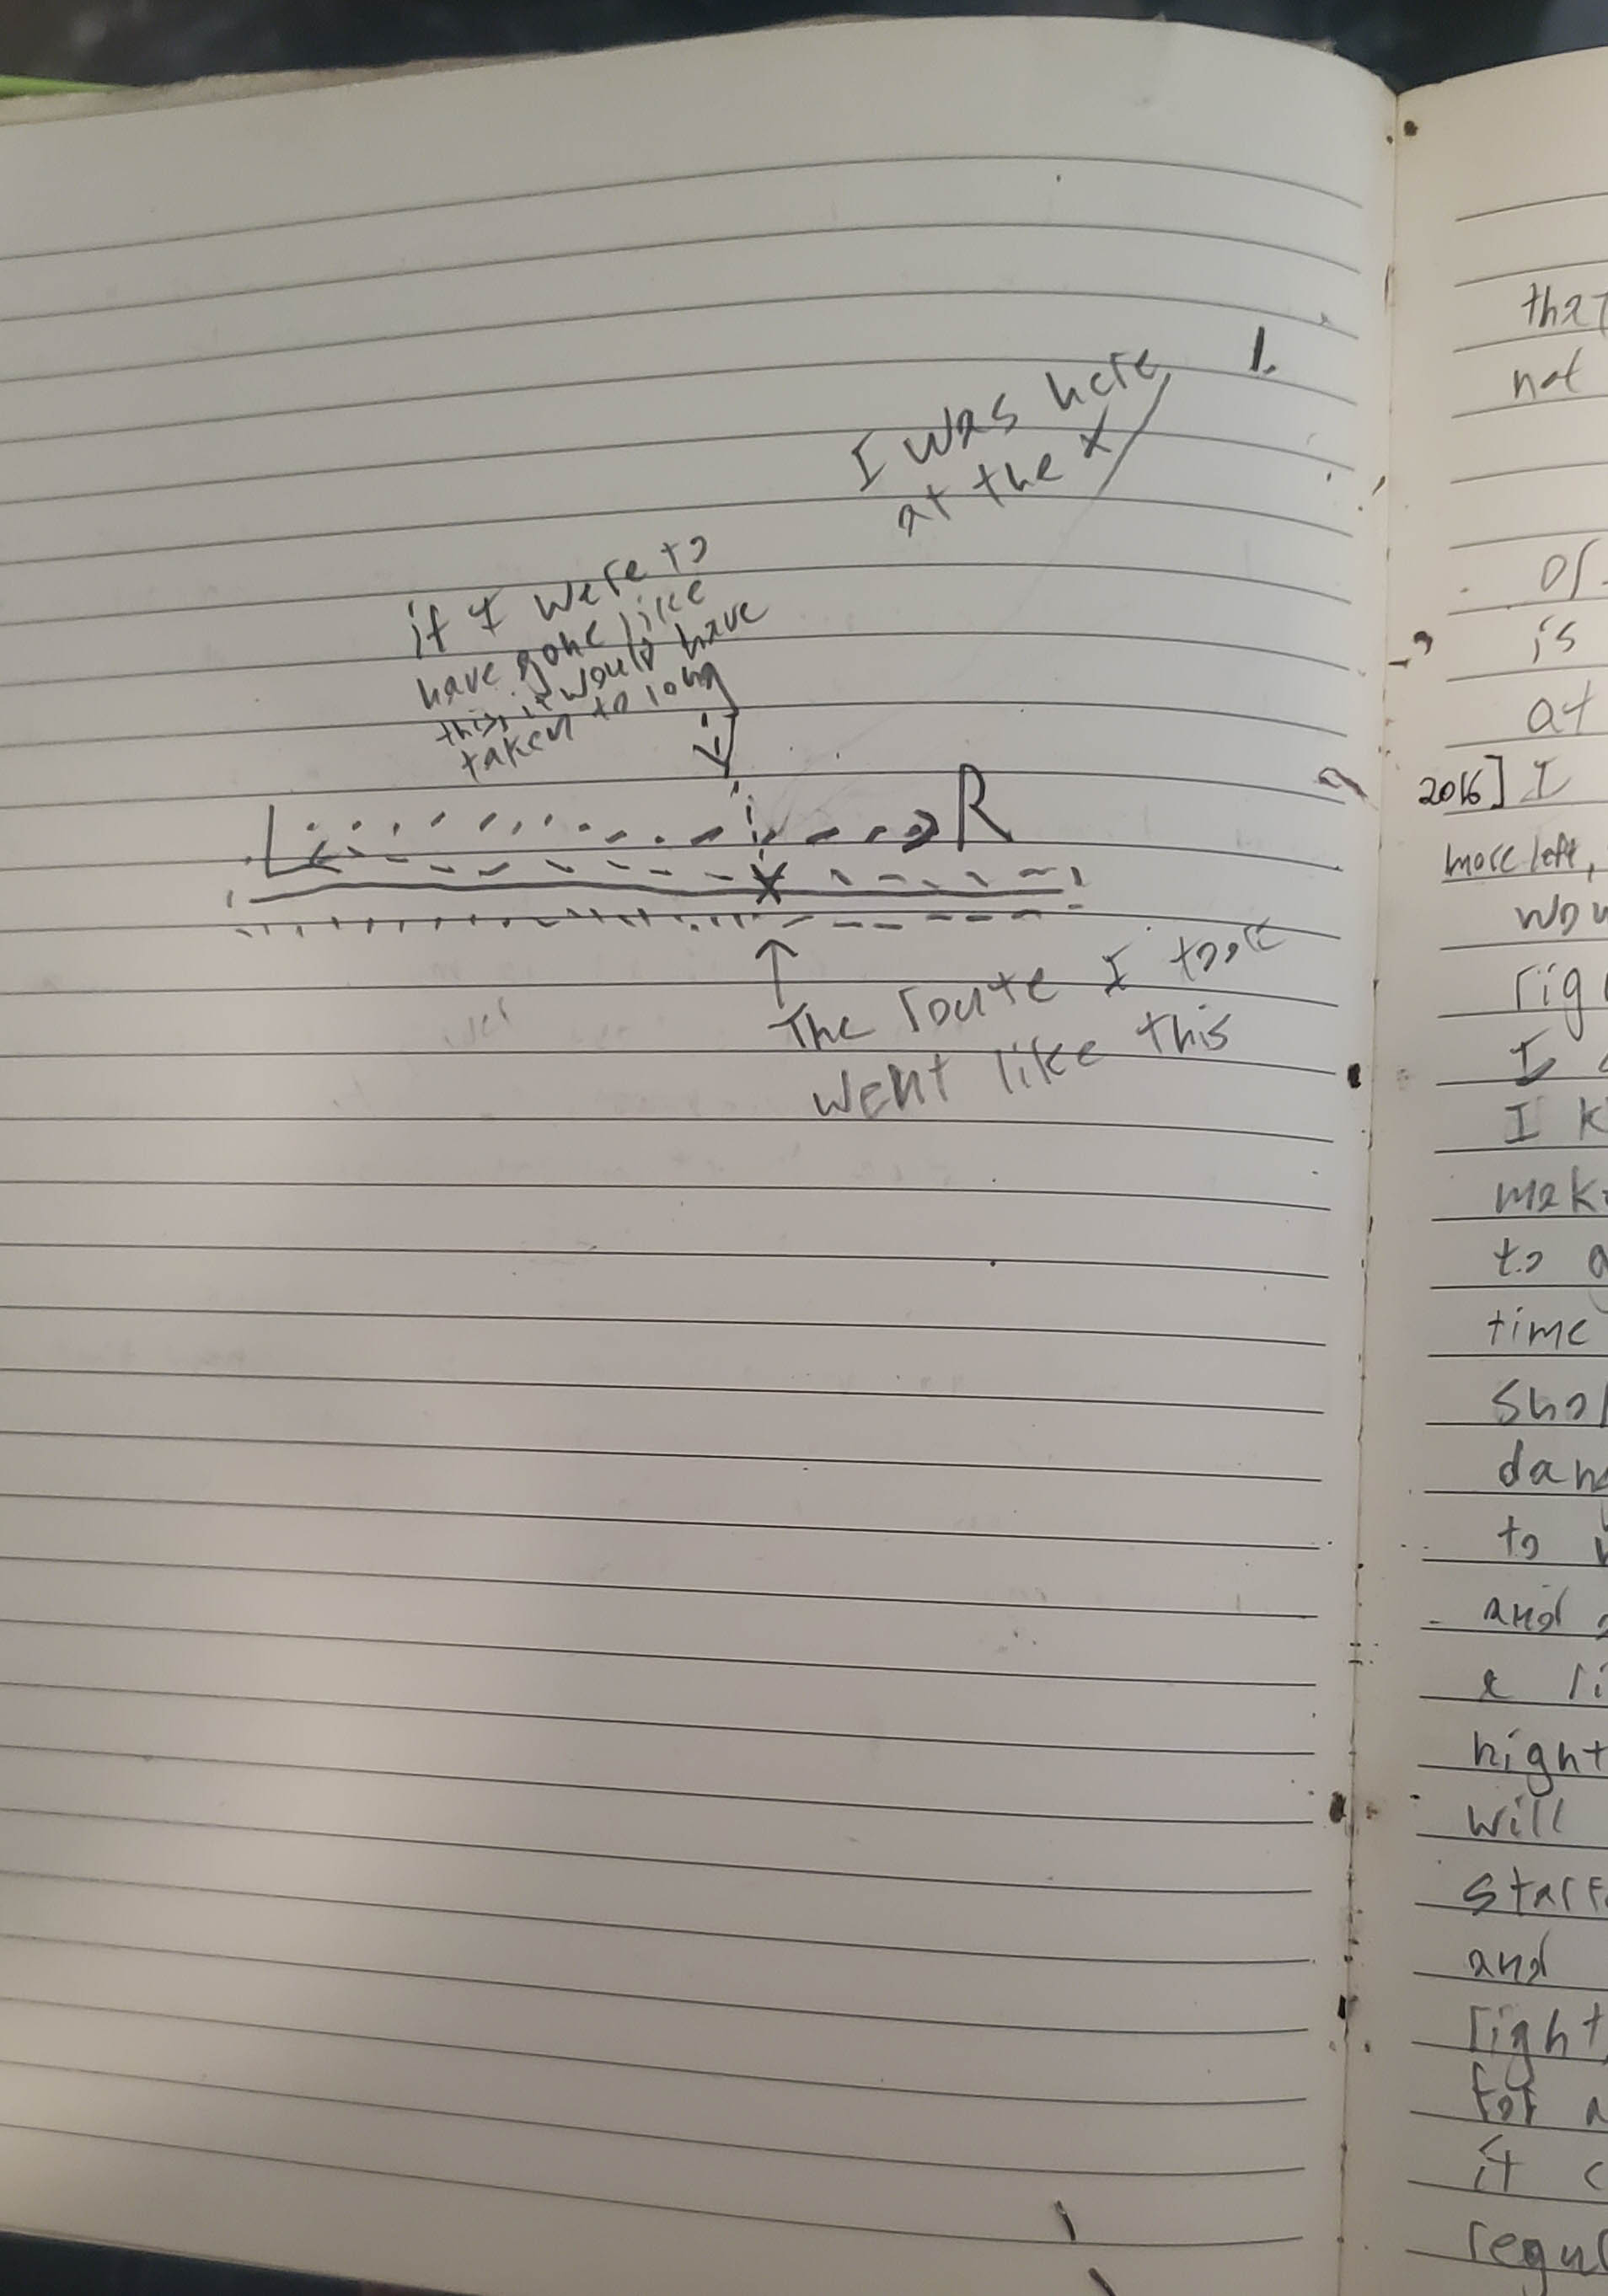 1.
I was here
at the X
if I were to
have gone like
this, it would have
taken to long
L R
X
The route I took
went like this
that
not
or
is
at
2016] I
more left,
wou
rig
I
I k
mak
to
time
shor
dan
to
and
a li
hight
will
start
and
right
for a
it c
regul